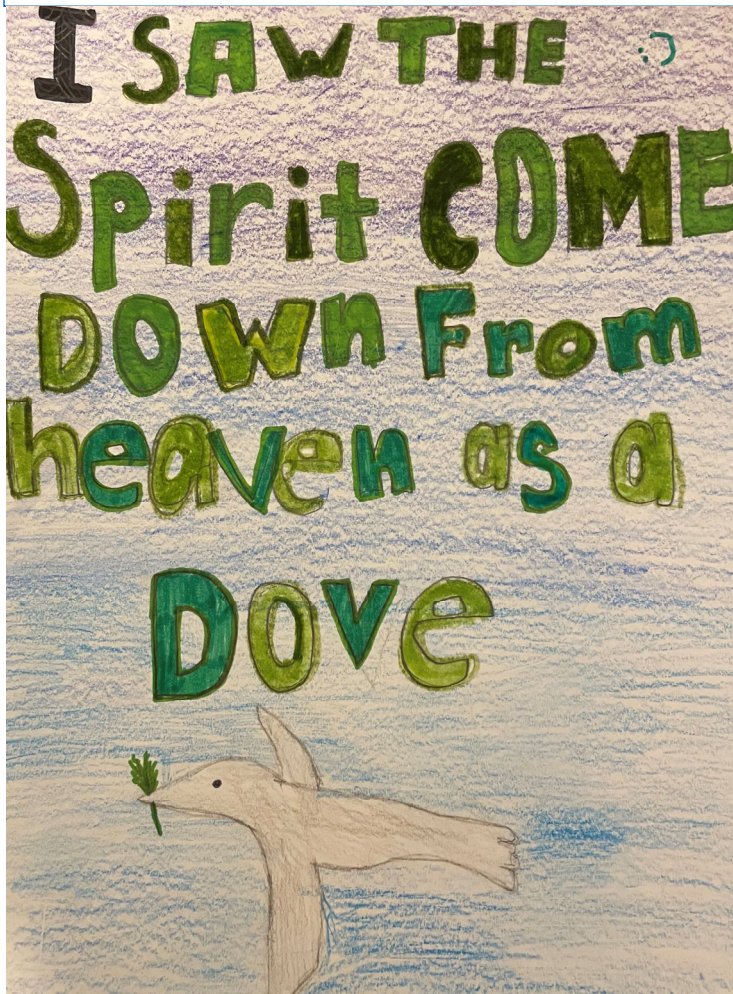 I SAW THE :)
Spirit COME
DOWn From
heaven as a
Dove